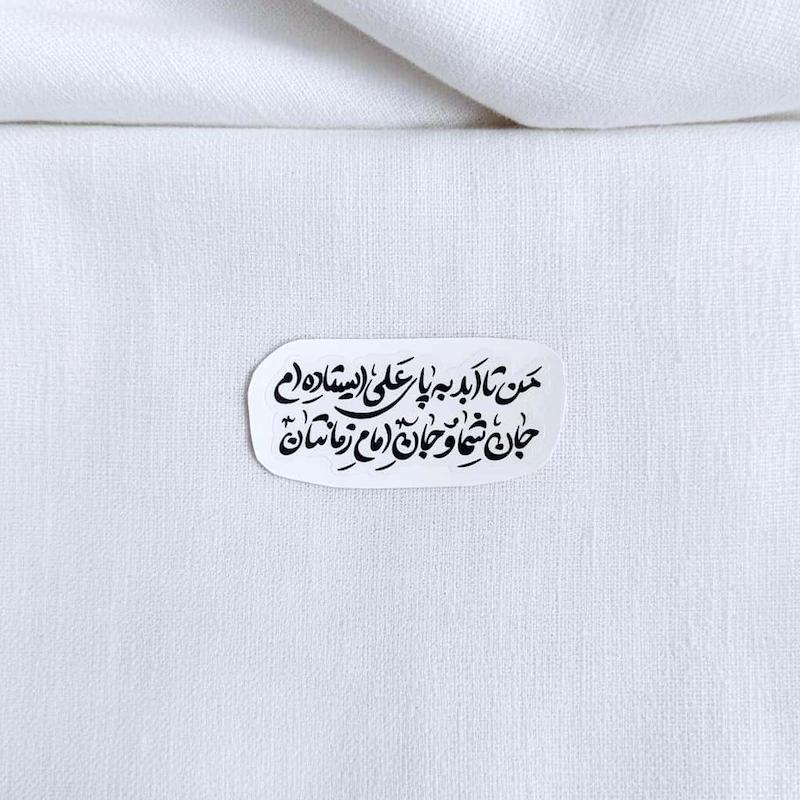 من تا ابد به پای علی ایستاده ام
جان شما و جان امام زمانتان